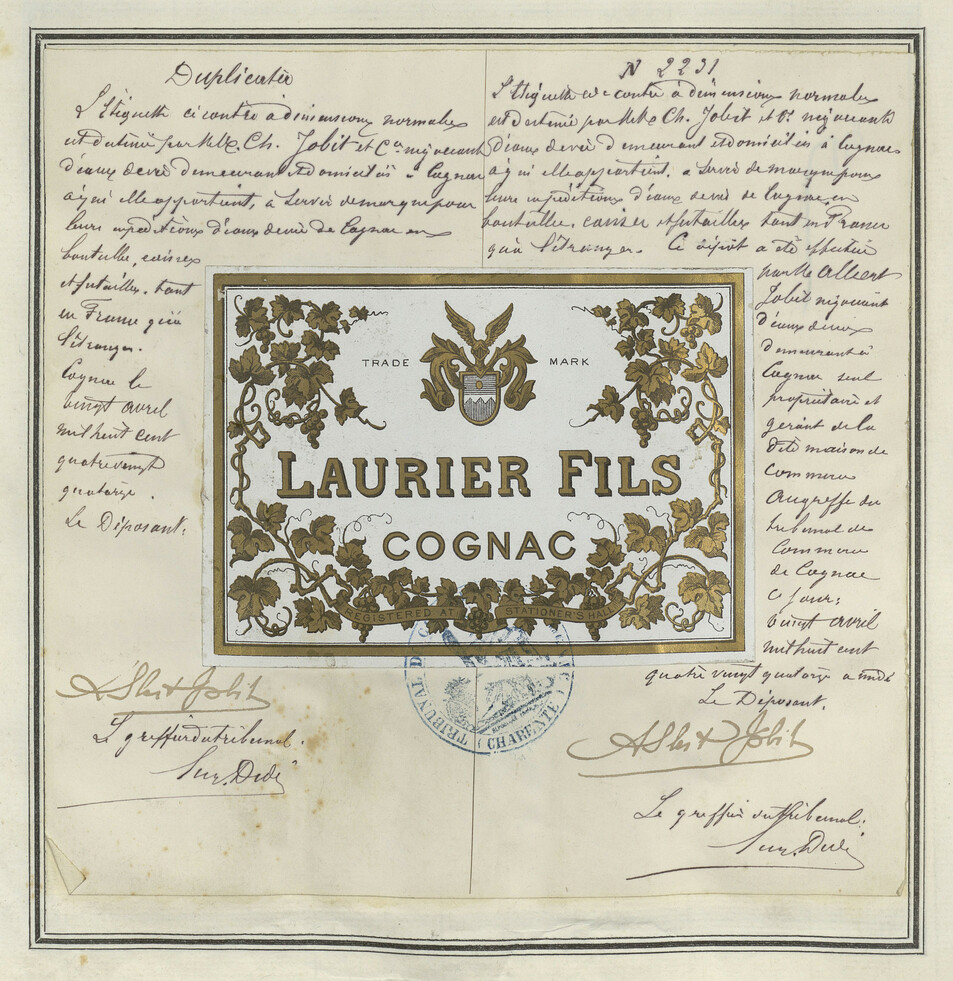 Duplicata
L'étiquette ci contre a dimensions normales
est destinée par MM. Ch. Jobit et Cie négociants
d'eaux de vie demeurant et domiciliés à Cognac
à qui elle appartient, à servir de marque pour
leurs expéditions d'eaux de vie de Cognac en
bouteilles, caisses
et futailles, tant
en France qu'à
l'étranger.
Cognac le
vingt avril
mil huit cent
quatre vingt
quatorze.
Le Déposant:
Albert Jobit
Le greffier du tribunal.
N 2231
L'étiquette ci contre a dimensions normales
est destinée par MM. Ch. Jobit et Cie négociants
d'eaux de vie demeurant et domiciliés à Cognac
à qui elle appartient, à servir de marque pour
leurs expéditions d'eaux de vie de Cognac en
bouteilles, caisses et futailles tant en France
qu'à l'étranger. Ce dépôt a été effectué
par M. Albert
Jobit négociant
d'eaux de vie
demeurant à
Cognac seul
propriétaire et
gérant de la
dite maison de
commerce
au greffe du
tribunal de
commerce
de Cognac
ce jour:
vingt avril
mil huit cent
quatre vingt quatorze à midi
Le Déposant.
Albert Jobit
Le greffier du tribunal:
TRADE MARK
LAURIER FILS
COGNAC
REGISTERED AT STATIONER'S HALL
TRIBUNAL D
CHARENTE